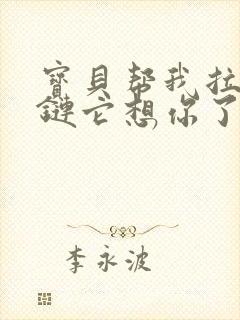 寶貝帮我拉
鏈它想你了
李永波